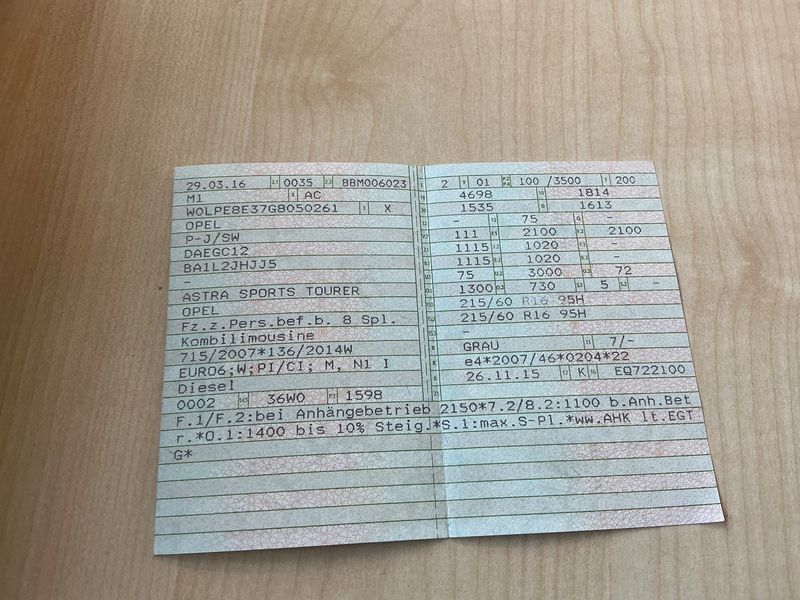 29.03.16 2.1 0035 2.2 BBM006023
M1 4 AC
W0LPE8E37G8050261 3 X
OPEL
P-J/SW
DAEGC12
BA1L2JHJJ5
-
ASTRA SPORTS TOURER
OPEL
Fz.z.Pers.bef.b. 8 Spl.
Kombilimousine
715/2007*136/2014W
EURO6;W;PI/CI; M, N1 I
Diesel
0002 14.1 36W0 P.1 1598
2 9 01 P.2 P.4 100 /3500 T 200
4698 18 1814
1535 G 1613
- 13 75 Q -
111 F.1 2100 F.2 2100
1115 7.2 1020 7.3 -
1115 8.2 1020 8.3 -
75 U.2 3000 U.3 72
1300 O.2 730 S.1 5 S.2 -
215/60 R16 95H
215/60 R16 95H
-
GRAU 11 7/-
e4*2007/46*0204*22
26.11.15 17 K 16 EQ722100
F.1/F.2:bei Anhängebetrieb 2150*7.2/8.2:1100 b.Anh.Bet
r.*O.1:1400 bis 10% Steig.*S.1:max.S-Pl.*ww.AHK lt.EGT
G*